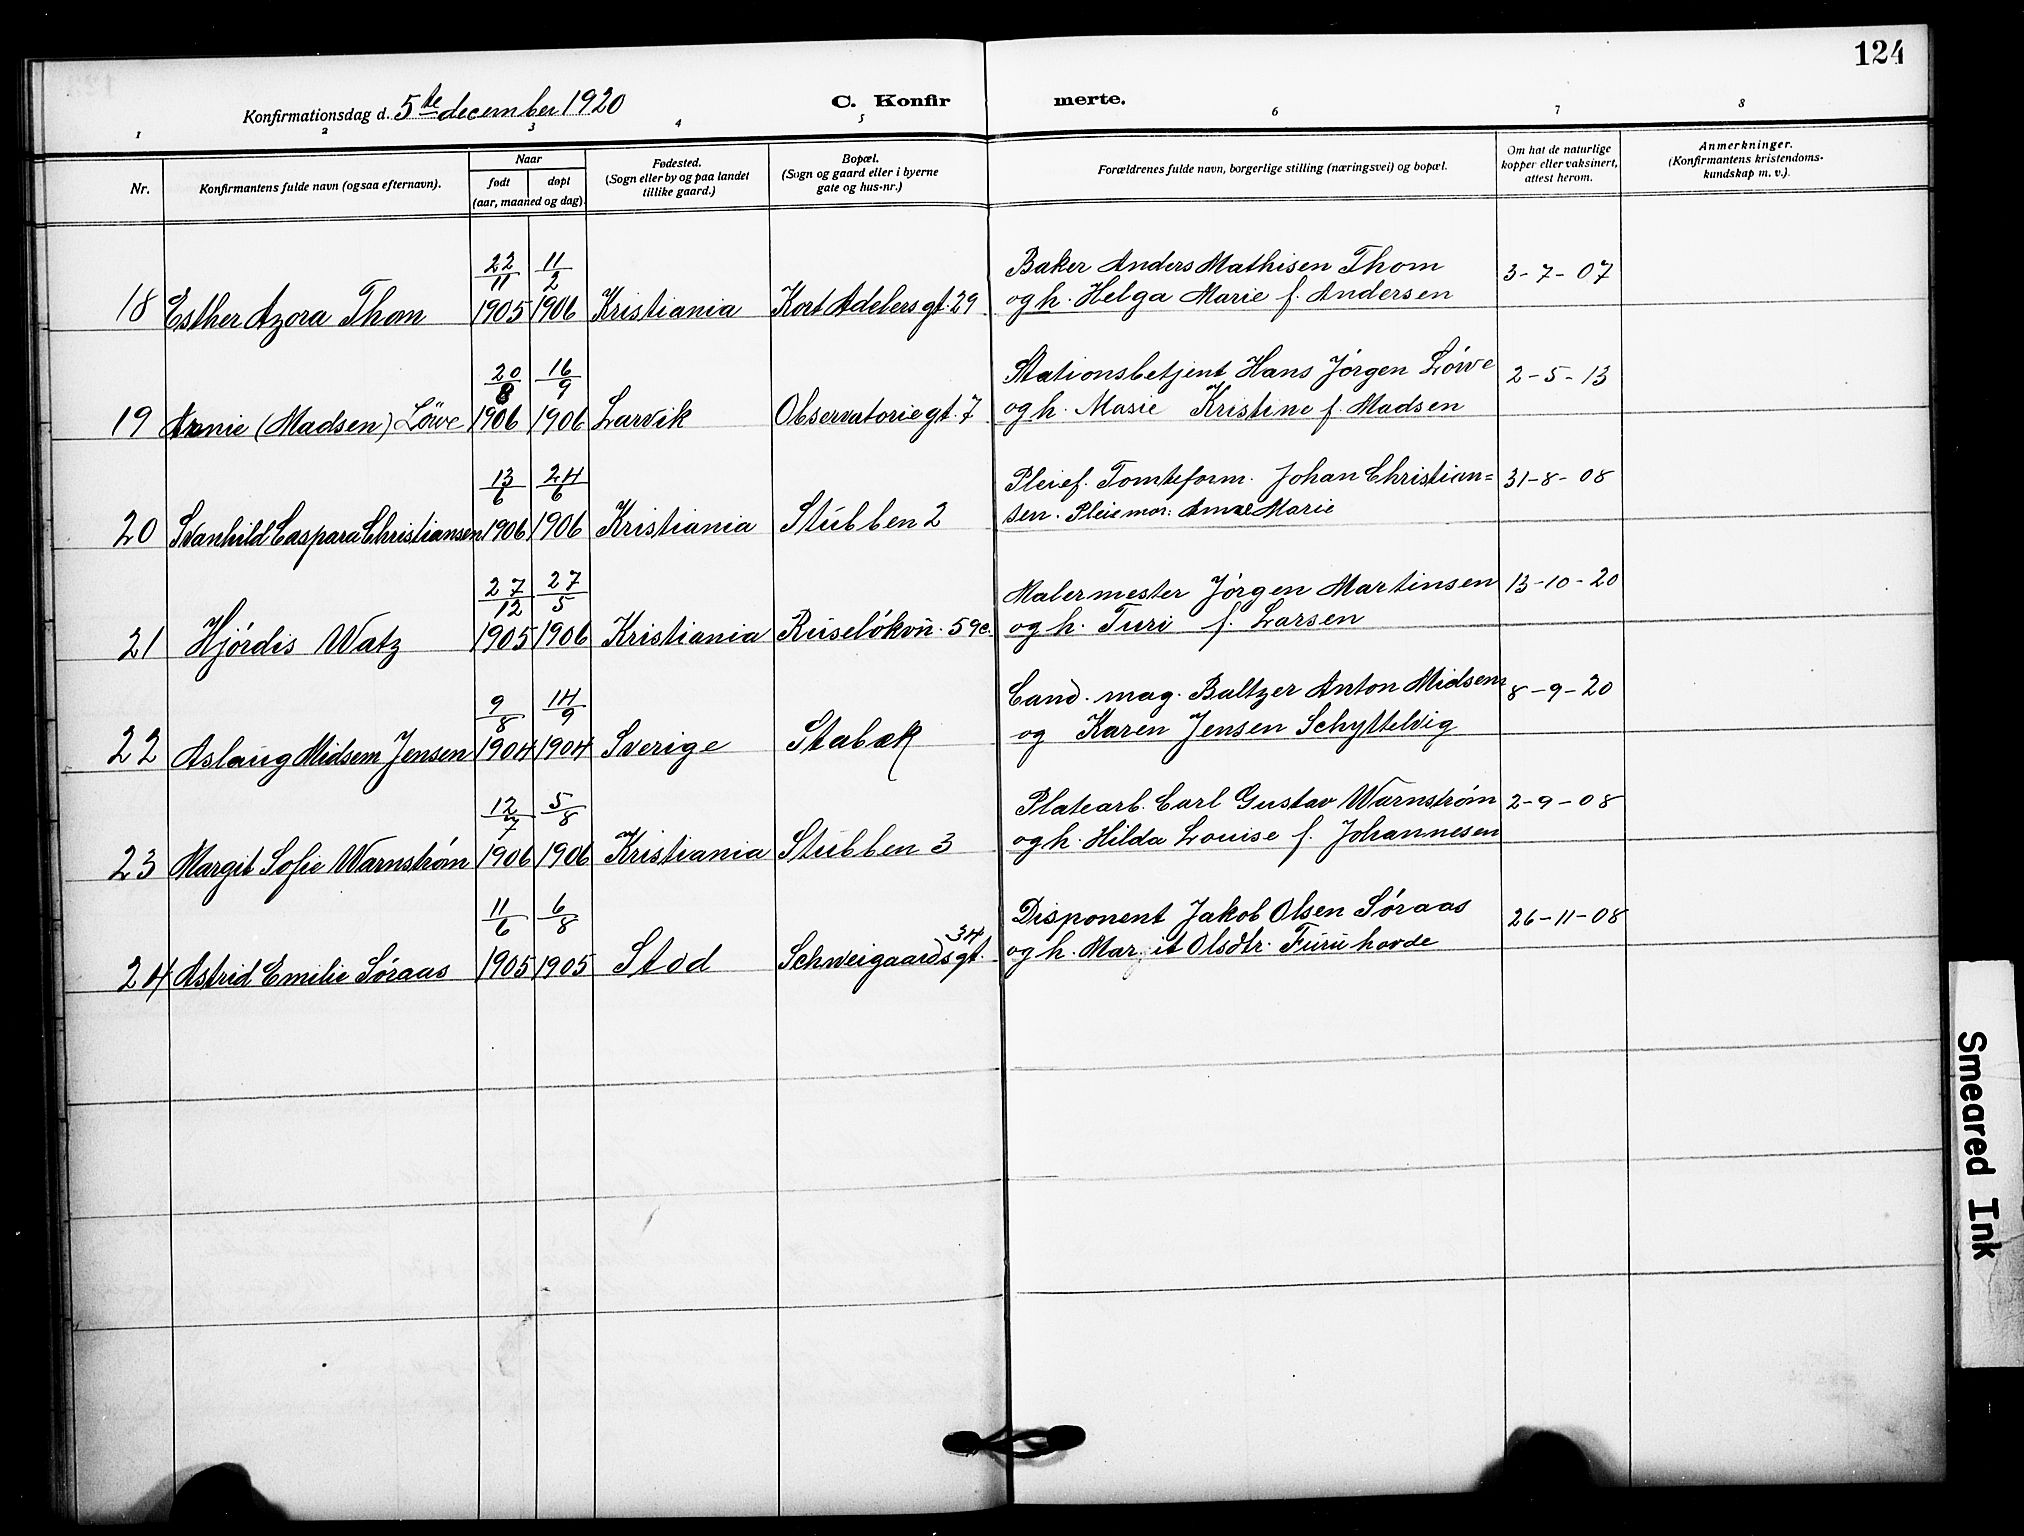 124
Konfirmationsdag d. 5te december 1920
C. Konfirmerte.
1 2 3 4 5 6 7 8
Nr.
Konfirmantens fulde navn (ogsaa efternavn).
Naar
født døpt
(aar, maaned og dag).
Fødested.
(Sogn eller by og paa landet
tillike gaard.)
Bopæl.
(Sogn og gaard eller i byerne
gate og hus-nr.)
Forældrenes fulde navn, borgerlige stilling (næringsvei) og bopæl.
Om hat de naturlige
kopper eller vaksinert,
attest herom.
Anmerkninger.
(Konfirmantens kristendoms-
kundskap m. v.).
22/11 11/2 Baker Anders Mathisen Thom 3-7-07
18 Esther Azora Thom 1905 1906 Kristiania Kort Adelers gt. 29 og h. Helga Marie f. Andersen
20/8 16/9 Stationsbetjent Hans Jørgen Løwe 2-5-13
19 Annie (Madsen) Löwe 1906 1906 Larvik Observatoriegt. 7 og h. Masie Kristine f. Madsen
13/6 24/6 Pleief. Tomteform. Johan Christian= 31-8-08
20 Svanhild Caspara Christiansen 1906 1906 Kristiania Stubben 2 sen. Pleiemor: Anna Marie
27/12 27/5 Malermester Jørgen Martinsen 13-10-20
21 Hjördis Watz 1905 1906 Kristiania Ruseløkvn. 59c. og h. Turi f. Larsen
9/8 14/9 Cand. mag. Baltzer Anton Midsem 8-9-20
22 Aslaug Midsem Jensen 1904 1904 Sverige Stabæk og Karen Jensen Schyttelvig
12/7 5/8 Platearb. Carl Gustav Warnstrøm 2-9-08
23 Margit Sofie Warnstrøm 1906 1906 Kristiania Stubben 3 og h. Hilda Louise f. Johannesen
11/6 6/8 Disponent Jakob Olsen Søraas 26-11-08
24 Astrid Emilie Søraas 1905 1905 Stod Schweigaardsgt. 34 og h. Margit Olsdtr. Furuhovde
Smeared Ink